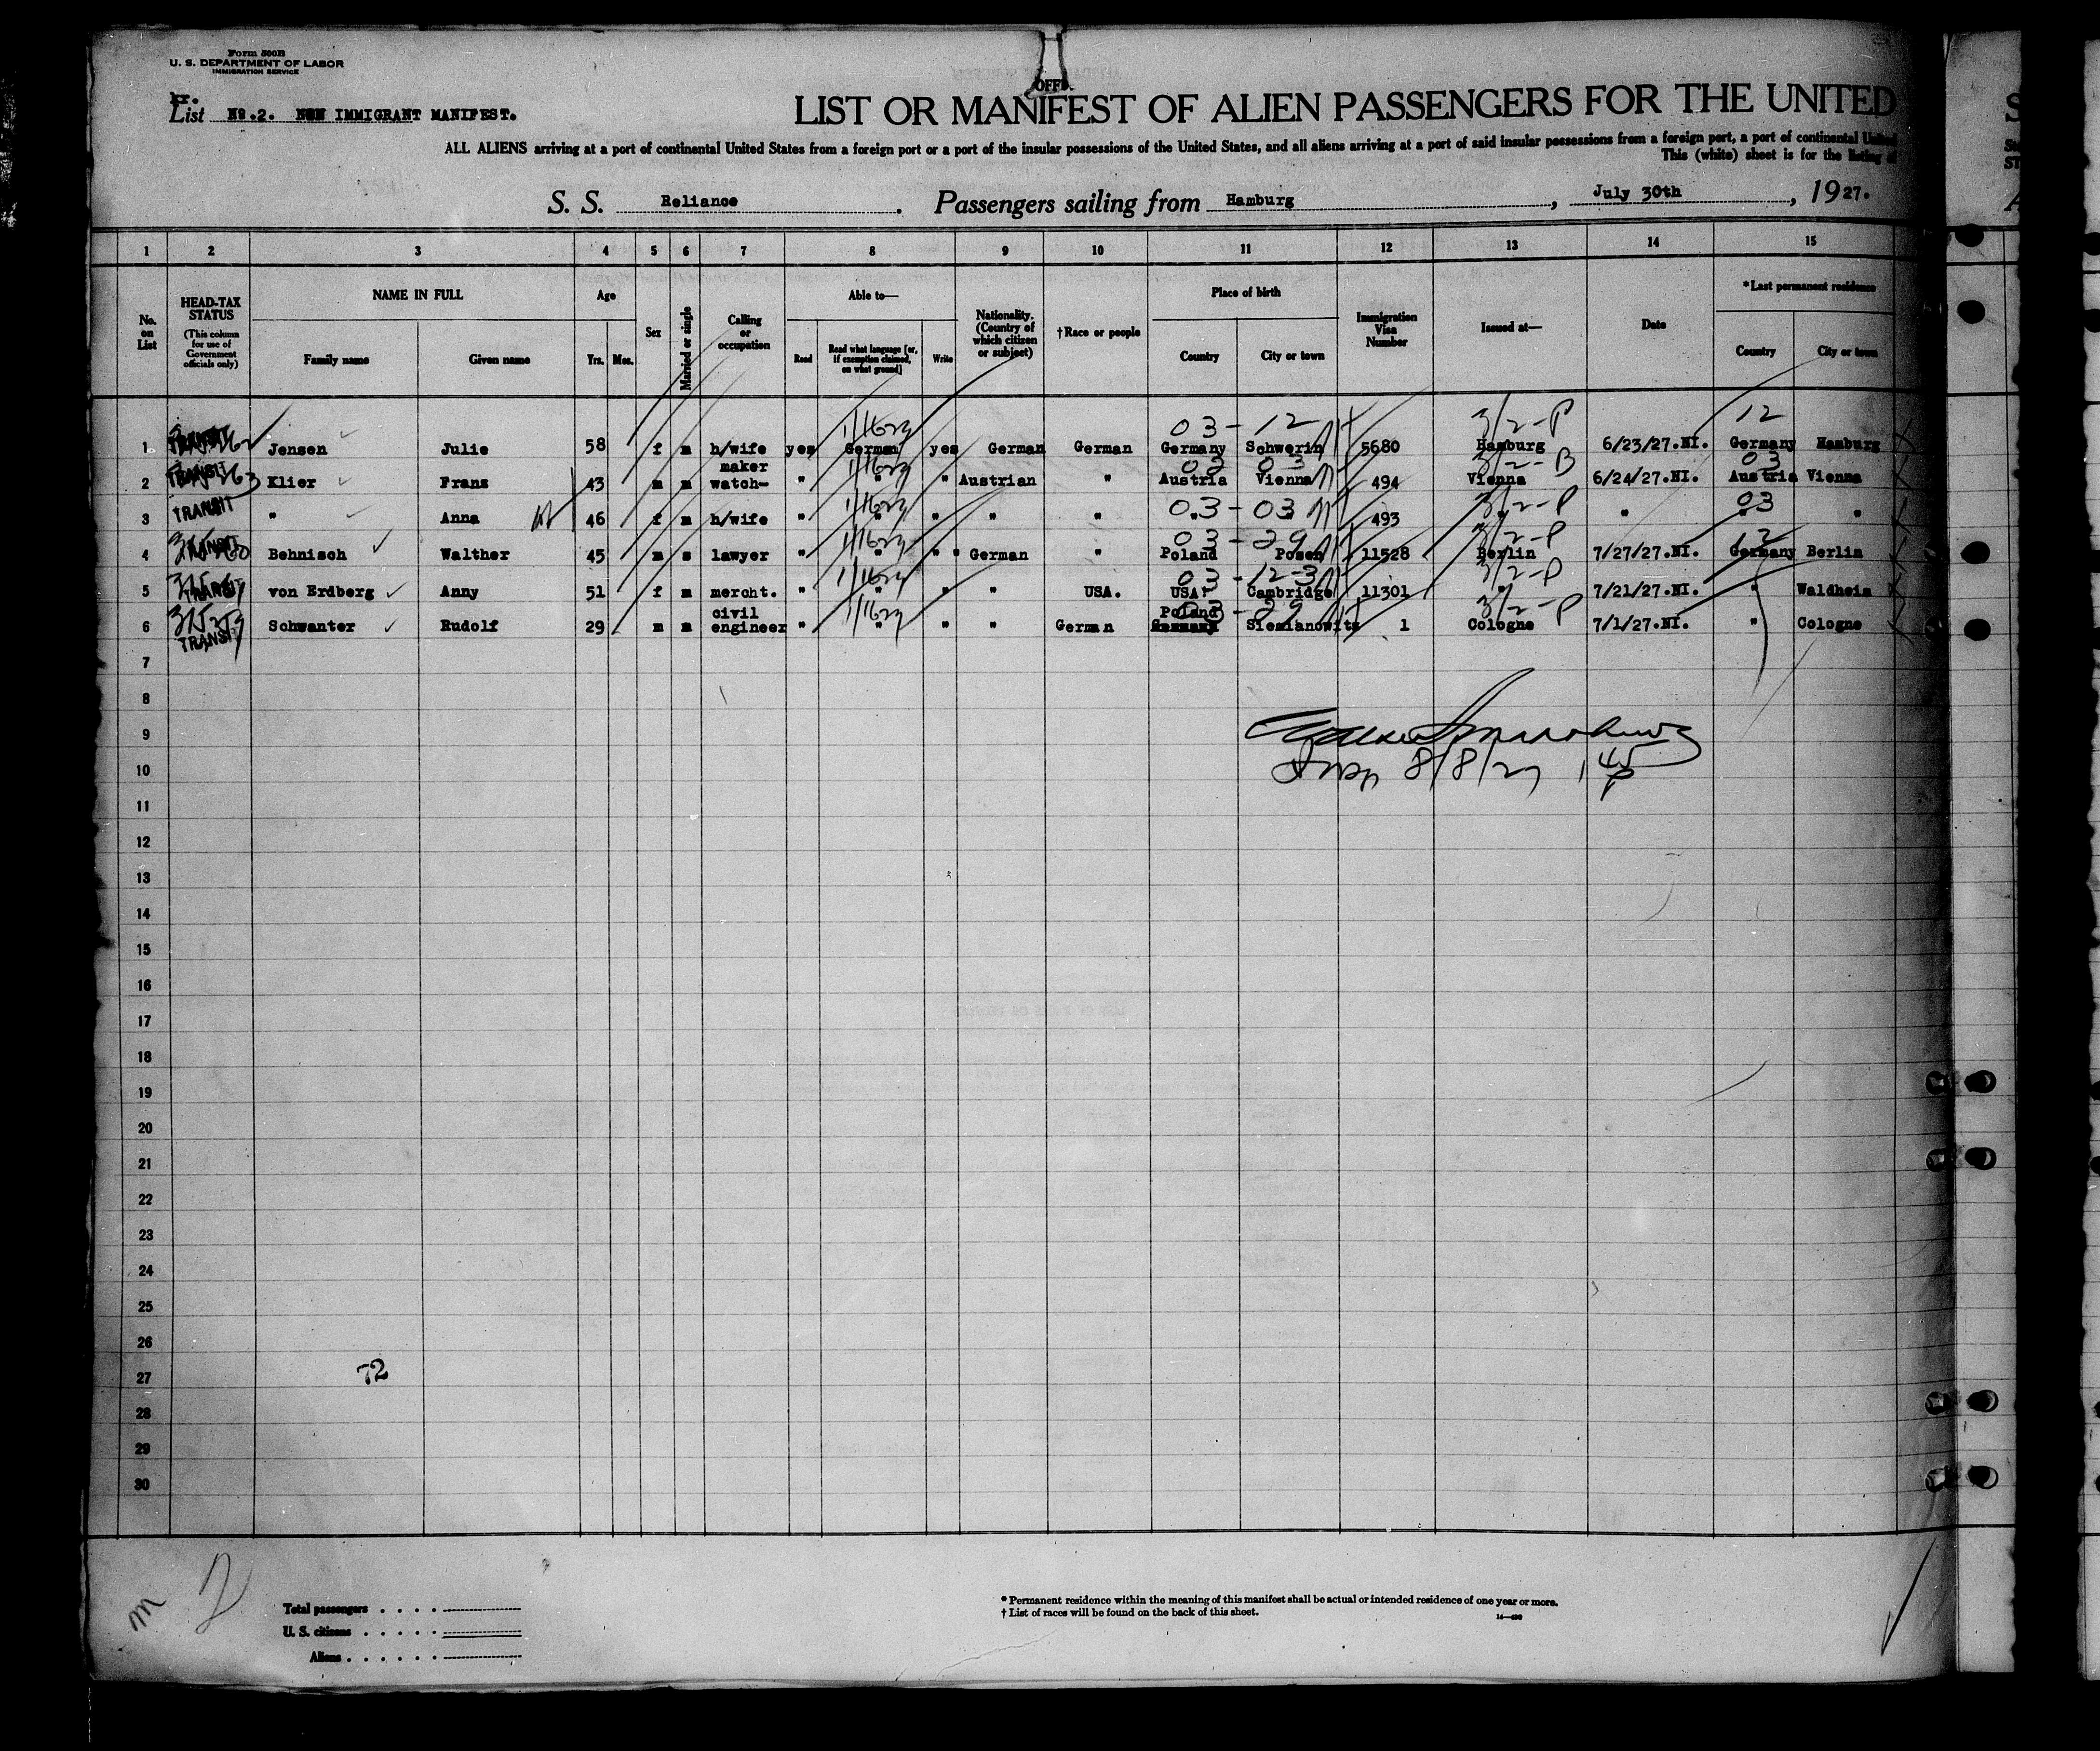 Form 500B
U. S. DEPARTMENT OF LABOR
IMMIGRATION SERVICE
List No.2. NON IMMIGRANT MANIFEST.
LIST OR MANIFEST OF ALIEN PASSENGERS FOR THE UNITED
ALL ALIENS arriving at a port of continental United States from a foreign port or a port of the insular possessions of the United States, and all aliens arriving at a port of said insular possessions from a foreign port, a port of continental United
This (white) sheet is for the listing of
S. S. Reliance. Passengers sailing from Hamburg, July 30th, 1927.
1 2 3 4 5 6 7 8 9 10 11 12 13 14 15
No. on List
HEAD-TAX STATUS (This column for use of Government officials only)
NAME IN FULL Family name Given name
Age Yrs. Mos.
Sex
Married or single
Calling or occupation
Able to— Read Read what language [or, if exemption claimed, on what ground] Write
Nationality. (Country of which citizen or subject)
†Race or people
Place of birth Country City or town
Immigration Visa Number
Issued at—
Date
*Last permanent residence Country City or town
03 - 12 3/2-P 12
1 TRANSIT Jensen Julie 58 f m h/wife yes German yes German German Germany Schwerin 5680 Hamburg 6/23/27.NI. Germany Hamburg
03 03 3/2-B 03
2 TRANSIT Klier Franz 43 m m watch-maker " " " Austrian " Austria Vienna 494 Vienna 6/24/27.NI. Austria Vienna
03 - 03 3/2-P 03
3 TRANSIT " Anna 46 f m h/wife " " " " " " " 493 " " " "
03 - 29 3/2-P 12
4 TRANSIT Behnisch Walther 45 m s lawyer " " " " German " Poland Posen 11528 Berlin 7/27/27.NI. Germany Berlin
03 - 12-3 3/2-P
5 TRANSIT von Erdberg Anny 51 f m mercht. " " " " USA. USA. Cambridge 11301 " 7/21/27.NI. " Waldheim
03 - 29 3/2-P
6 TRANSIT Schwanter Rudolf 29 m m civil engineer " " " " German Poland Germany Siemianowitz 1 Cologne 7/1/27.NI. " Cologne
7
8
9
10
8/8/27 1 45 P
11
12
13
14
15
16
17
18
19
20
21
22
23
24
25
26
27
72
28
29
30
m 2
Total passengers . . . .
U. S. citizens . . . . .
Aliens . . . . . .
* Permanent residence within the meaning of this manifest shall be actual or intended residence of one year or more.
† List of races will be found on the back of this sheet.